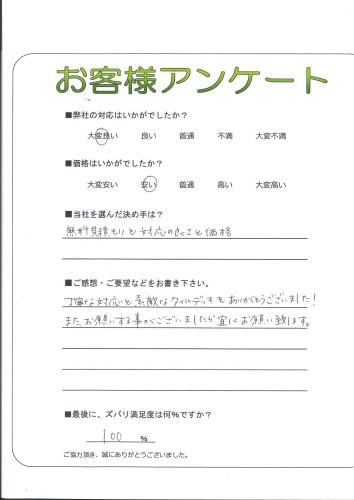 お客様アンケート
■弊社の対応はいかがでしたか？
大変良い 良い 普通 不満 大変不満
■価格はいかがでしたか？
大変安い 安い 普通 高い 大変高い
■当社を選んだ決め手は？
無料見積もりと対応の良さと価格
■ご感想・ご要望などをお書き下さい。
丁寧な対応と素敵なタイルデッキをありがとうございました！
また、お願いする事がございましたら宜しくお願い致します。
■最後に、ズバリ満足度は何%ですか？
100 %
ご協力頂き、誠にありがとうございました。